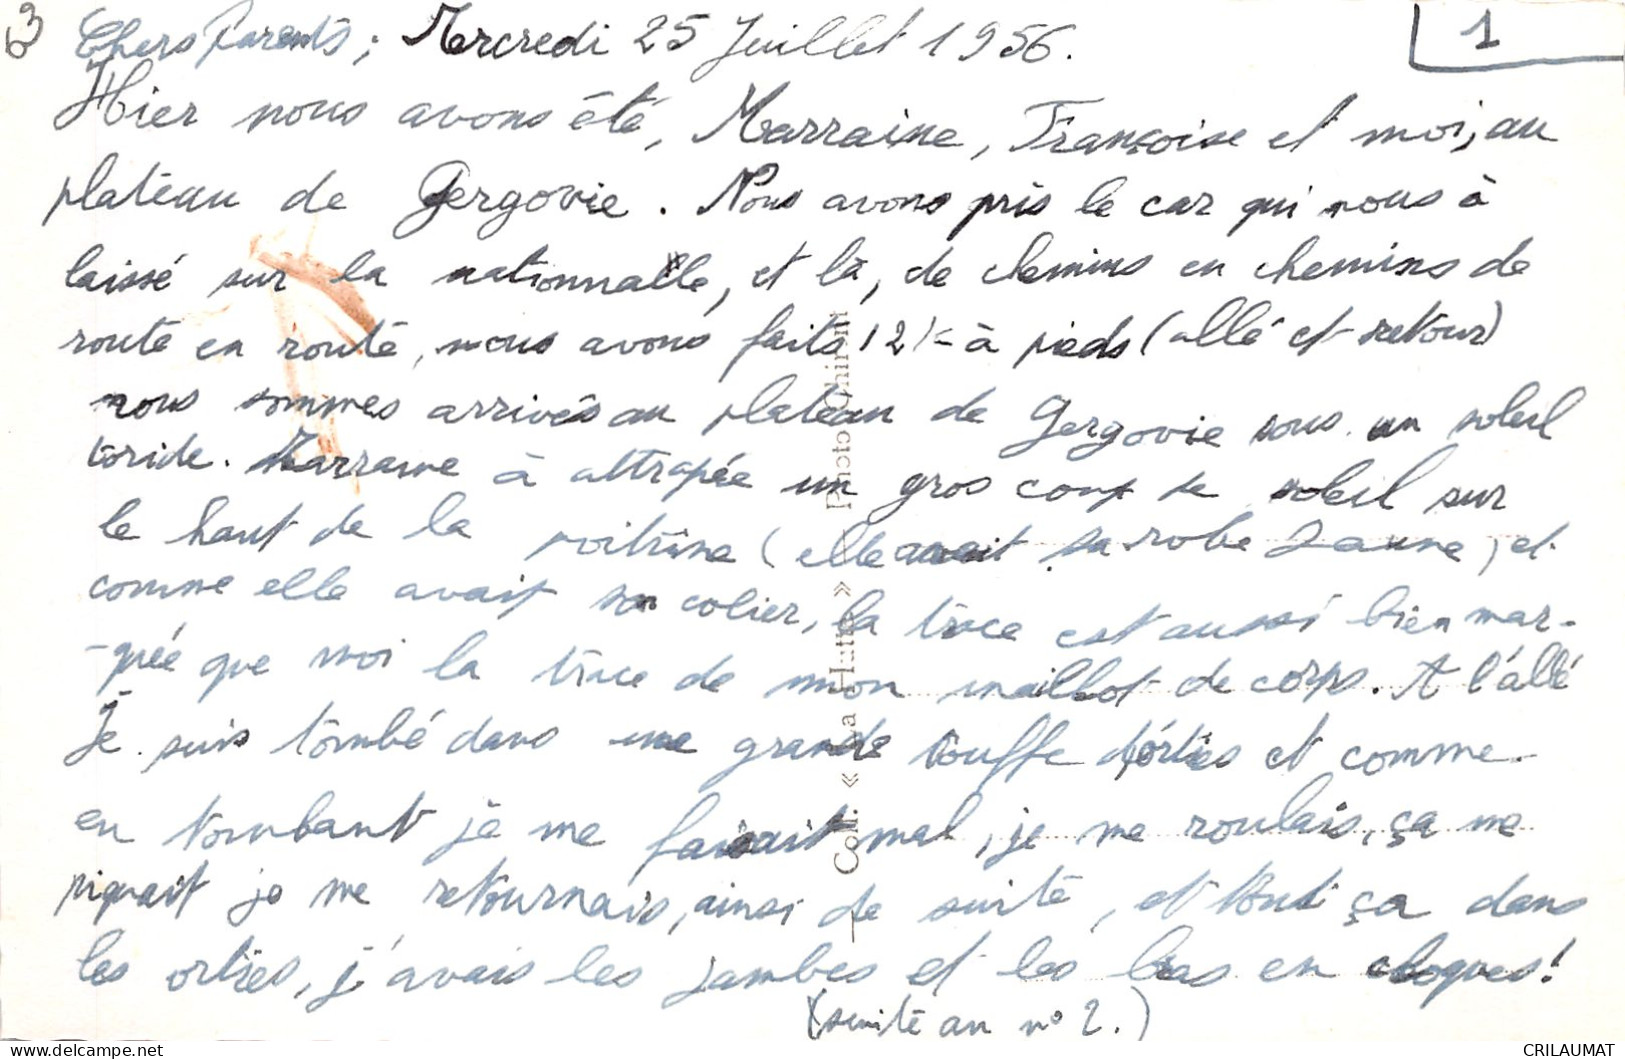 3
1
Chers Parents, Mercredi 25 Juillet 1956.
Hier nous avons été, Marraine, Françoise et moi, au
plateau de Gergovie. Nous avons pris le car qui nous à
laissé sur la nationnalle, et là, de chemins en chemins de
route en route, nous avons faits 12 K à pieds (allé et retour)
nous sommes arrivés au plateau de Gergovie sous un soleil
toride. Marraine à attrapée un gros coup de soleil sur
le haut de la poitrine (elle avait sa robe Jaune, et
comme elle avait son colier, la trace est aussi bien mar-
-quée que moi la trace de mon maillot de corps. A l'allé
Je suis tombé dans une grande touffe d'orties et comme
en tombant je me faisait mal, je me roulais, ça me
piquait je me retournais, ainsi de suite, et tout ça dans
les orties, j'avais les jambes et les bras en cloques!
(suite au n° 2.)
Coll. « La Hutte » — Photo Chiront
CRILAUMAT